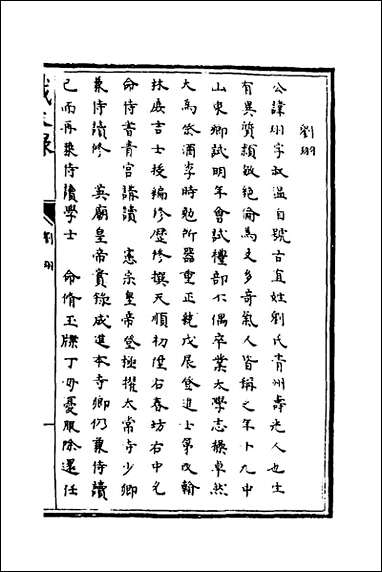 劉珝
公諱珝字叔溫自號古直姓劉氏青州壽光人也生
有異質穎敏絕倫為文多奇氣人皆稱之年十九中
山東鄉試明年會試禮部不偶卒業太學志操卓然
大為祭酒李時勉所器重正統戊辰登進士第改翰
林庶吉士授編修歷修撰天順初陞右春坊右中允
命侍書青宮講讀 憲宗皇帝登極擢太常寺少卿
兼侍讀修 英廟皇帝實錄成進本寺卿仍兼侍讀
已而再兼侍讀學士 命脩玉牒丁母憂服除還任
劉珝
一